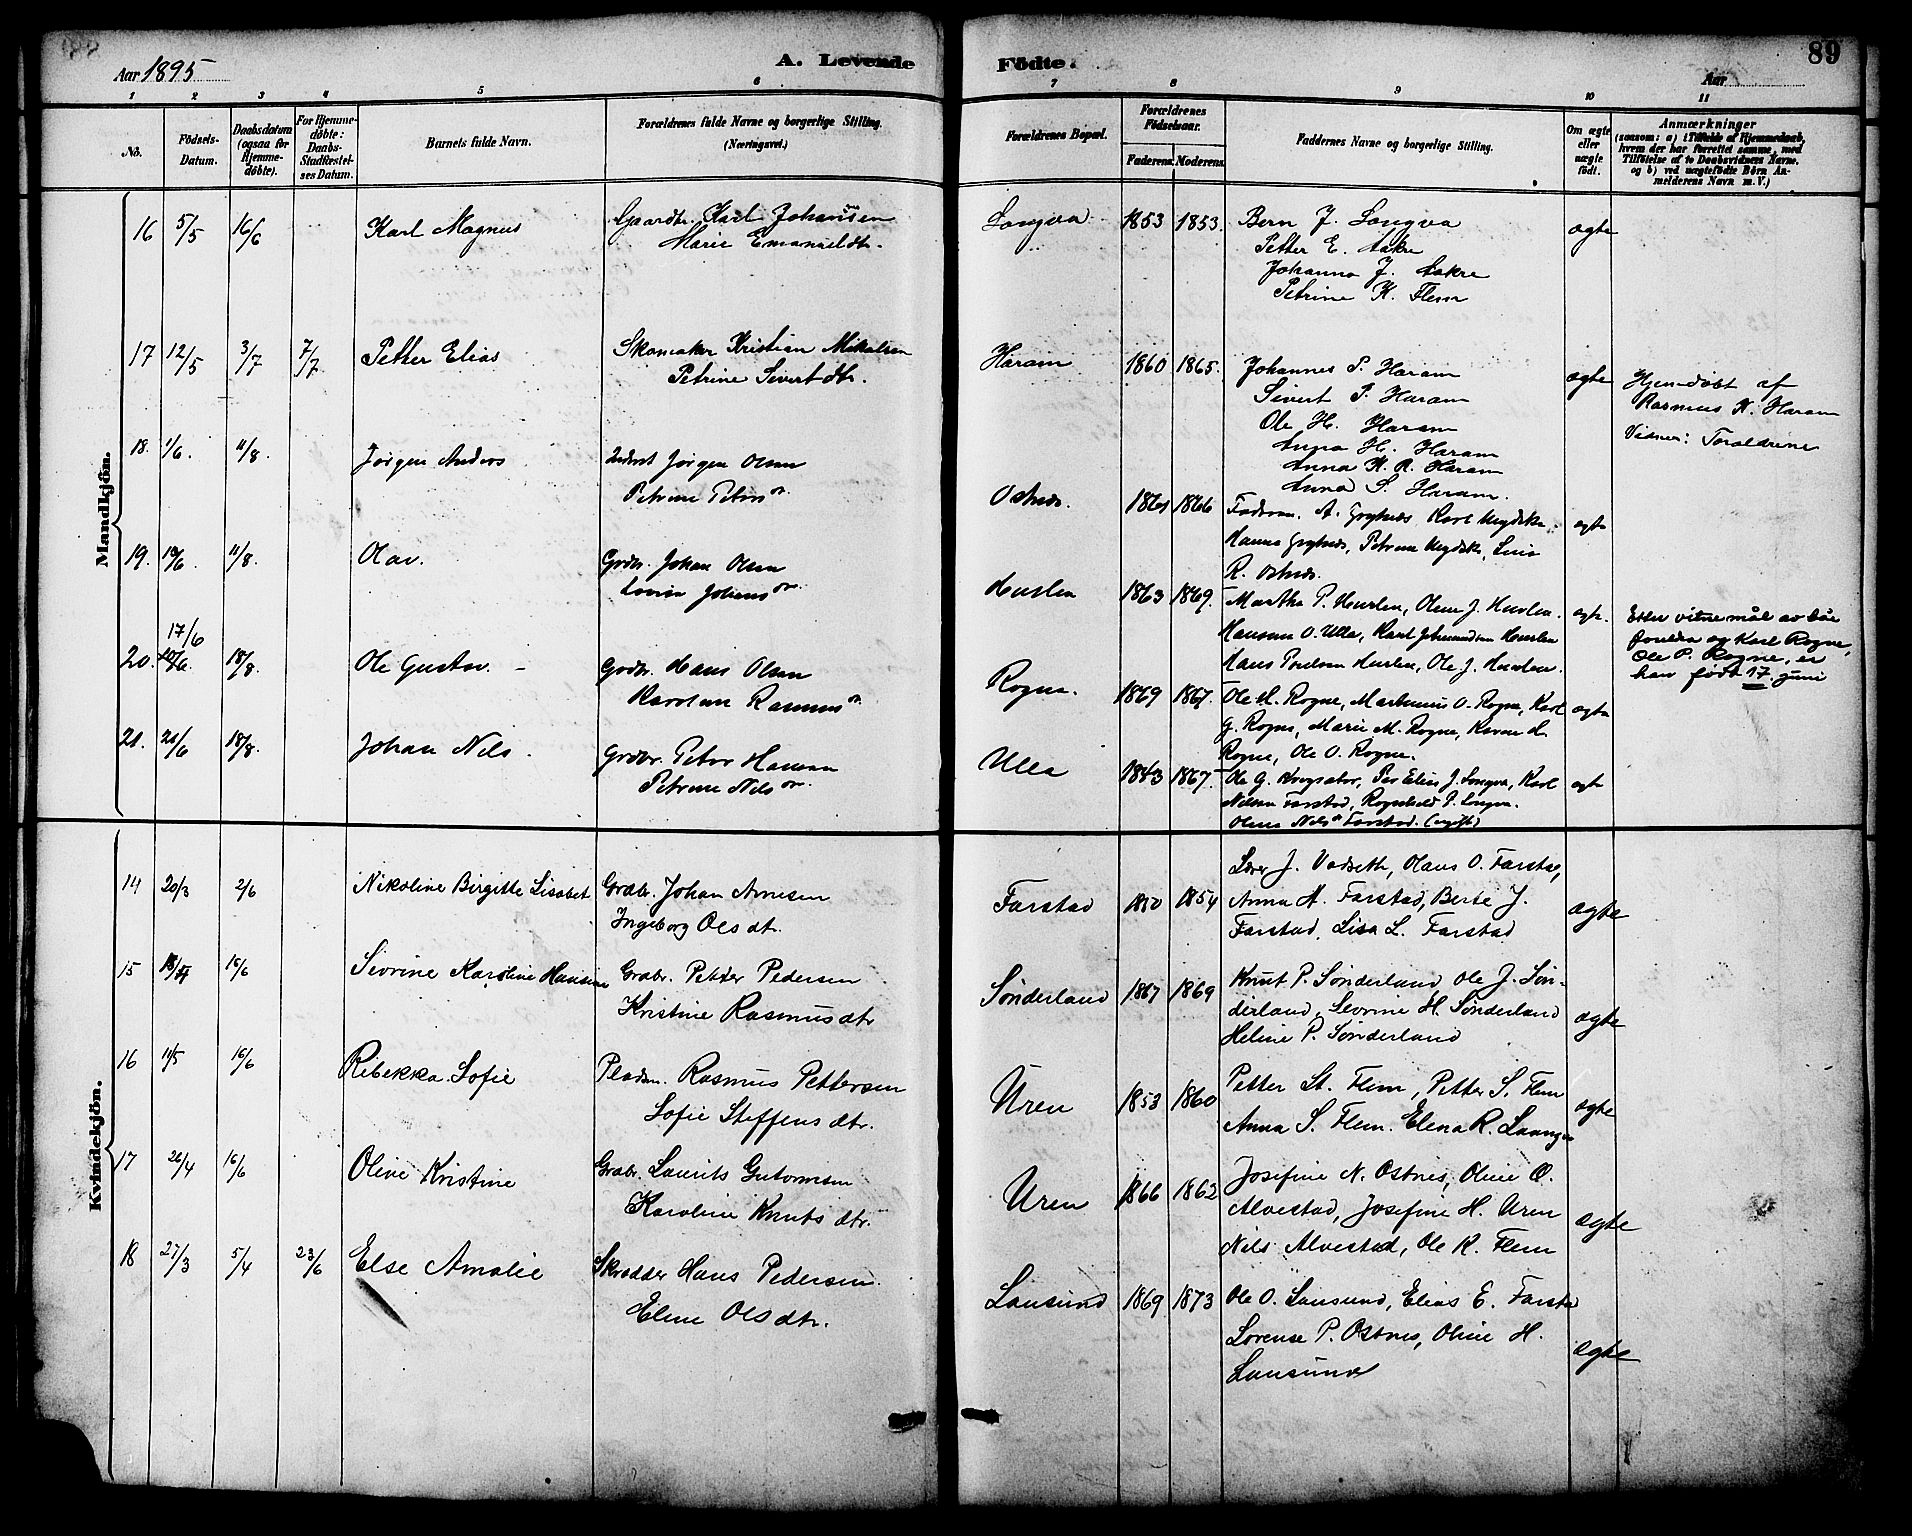 Aar 1895
A. Levende Födte.
89
Aar
1 2 3 4 5 6 7 8 9 10 11
No.
Födsels-Datum.
Daabsdatum (ogsaa for Hjemme-döbte).
For Hjemme-döbte: Daabs-Stadfæstel-ses Datum.
Barnets fulde Navn.
Forældrenes fulde Navne og borgerlige Stilling. (Næringsvei.)
Forældrenes Bopæl.
Forældrenes Födselsaar.
Faderens. Moderens.
Faddernes Navne og borgerlige Stilling.
Om ægte eller uægte födt.
Anmærkninger
(saasom: a) i Tilfælde af Hjemmedaab, hvem der har forrettet samme, med Tilföielse af to Daabsvidners Navne. og b) ved uægtefödte Børn An-melderens Navn m. V.)
Mandkjön.
16 5/5 16/6 Karl Magnus Gaardbr. Karl Johansen Longva 1853 1853. Bern J. Longva ægte
Marie Emanueldtr. Petter E. Aakre
Johanna J. Aakre
Petrine K. Flem
17 12/5 3/7 7/7 Petter Elias Skomaker Kristian Mikalsen Haram 1860 1865. Johannes P. Haram ægte Hjemdöbt af
Petrine Sivertdtr. Sivert P. Haram Rasmus K. Haram
Ole H. Haram Vidner: Foraldrene
Anna H. Haram
Anna K. R. Haram
Anna S. Haram.
18. 1/6. 11/8. Jørgen Anders Inderst Jørgen Olsen Ostnes. 1861 1866 A. Grytnes Karl ægte
Petrine Peters dr. Hanna Grytnes, Petrine
R. Ostnes.
19. 11/8. Olav. Grdbr. Johan Olsen Huslen 1863 1869. Martha P. Huslen, Oline J. Huslen. ægte.
Lovise Johans dr. Hansine O. Ulla, Karl Johannessen Huslen
Hans Poulsen Huslen, Ole J. Huslen.
Etter vitnemål av
foreldra og Karl Rogne,
Ole P. Rogne, er
han født 17. juni
17/6
20. 18/8. Ole Gustav. Grdbr. Hans Olsen Rogne. 1869 1867. Ole M. Rogne, Martinus O. Rogne, Karl ægte
Karoline Rasmus dr. G. Rogne, Marie M. Rogne, Karen L.
Rogne, Ole O. Rogne.
21. 21/6 18/8. Johan Nils. Grdbr. Peter Hansen Ulla 1843 1867. Ole G. Per Elias J. Longva, Karl ægte
Petrine Nils dr. Nilsen Farstad, Ragnhild P. Longva.
Oline Nils dr Farstad. (ugift)
Kvindekjön.
14 20/3 2/6 Nikoline Birgitte Lisabet Grdbr. Johan Arnesen Farstad 1850 1854 Lærer J. Vadseth, Olaus O. Farstad, ægte
Ingeborg Olsdtr. Anna M. Farstad, Berte J.
Farstad, Lisa L. Farstad
15 16/6 Sivrine Karoline Hansine Grdbr. Petter Pedersen Sønderland 1867 1869 Knut P. Sønderland, Ole J. Søn-
Kristine Rasmusdtr derland, Sevrine H. Sønderland ægte
Heline P. Sønderland
16 11/5 16/6 Rebekka Sofie Pladsm. Rasmus Pettersen Uren 1853 1860 Petter St. Flem, Petter S. Flem ægte
Sofie Steffensdtr. Anna S. Flem. Elena R.
17 26/4 16/6 Olive Kristine Grdbr. Laurits Gutormsen Uren 1866 1862 Josefine N. Ostnes, Oline O.
Karoline Knutsdtr. Alvestad, Josefine H. Uren ægte
Nils Alvestad, Ole K. Flem
18 27/3 5/4 23/6 Else Amalie Skrædder Hans Pedersen Lausund 1869 1873 Ole O. Lausund, Elias E. Farstad
Eline Olsdtr. Lorense P. Ostnes, Oline H. ægte
Lausund